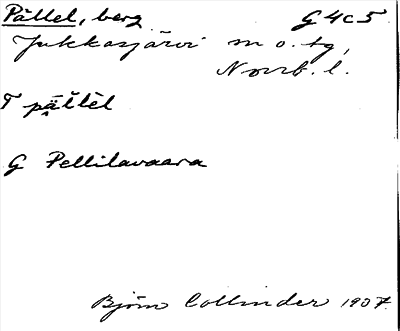 Pållel, berg G4c5
Jukkasjärvi m o. tg,
Norrb. l.
G Pellilavaara
Björn Collinder 1907